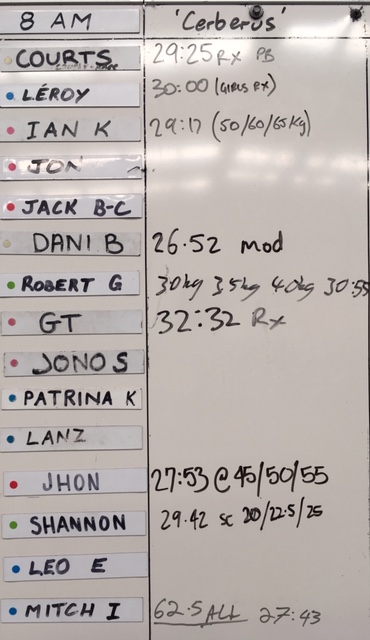 8 AM 'Cerberus'
COURTS 29:25 Rx PB
LÉROY 30:00 (GIRLS RX)
IAN K 29:17 (50/60/65kg)
JON
JACK B-C
DANI B 26.52 mod
ROBERT G 30kg 35kg 40kg 30:55
GT 32:32 Rx
JONO S
PATRINA K
LANZ
JHON 27:53 @ 45/50/55
SHANNON 29.42 sc 20/22.5/25
LEO E
MITCH I 62.5 ALL 27:43